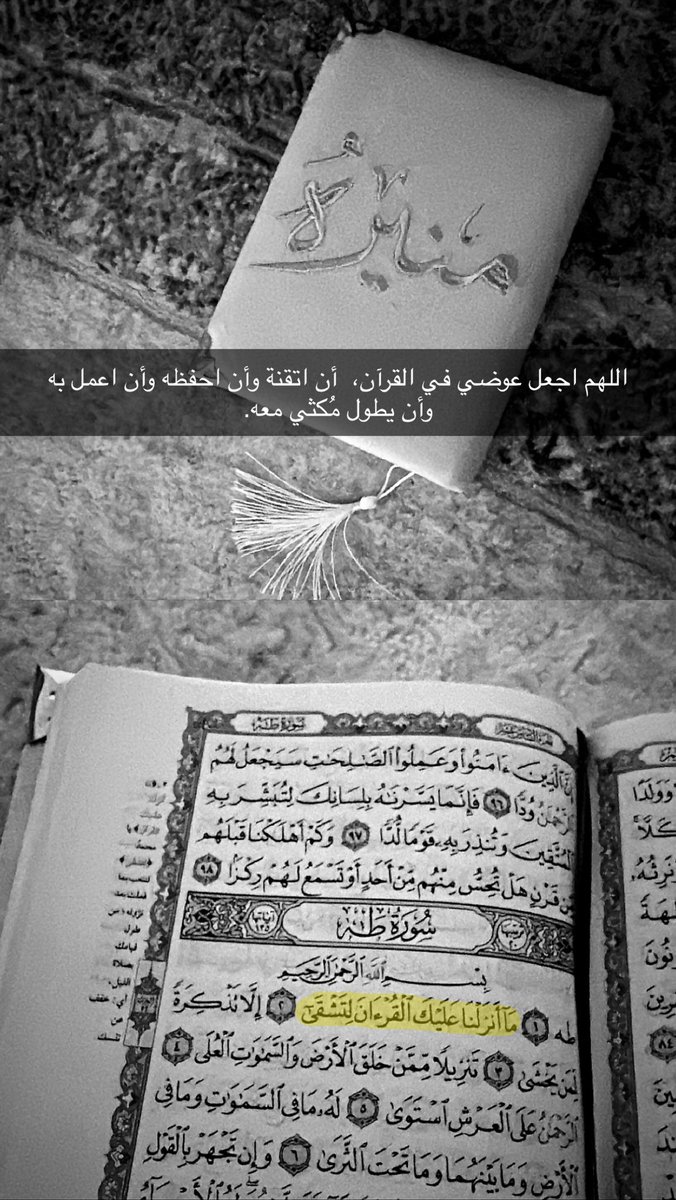 منيرة
اللهم اجعل عوضي في القرآن، أن اتقنة وأن احفظه وأن اعمل به
وأن يطول مُكثي معه.
سُورَةُ طه
ءَامَنُوا۟ وَعَمِلُوا۟ ٱلصَّـٰلِحَـٰتِ سَيَجْعَلُ لَهُمُ
ٱلرَّحْمَـٰنُ وُدًّا ٩٦ فَإِنَّمَا يَسَّرْنَـٰهُ بِلِسَانِكَ لِتُبَشِّرَ بِهِ
ٱلْمُتَّقِينَ وَتُنذِرَ بِهِۦ قَوْمًا لُّدًّا ٩٧ وَكَمْ أَهْلَكْنَا قَبْلَهُم
مِّن قَرْنٍ هَلْ تُحِسُّ مِنْهُم مِّنْ أَحَدٍ أَوْ تَسْمَعُ لَهُمْ رِكْزًۢا ٩٨
سُورَةُ طه
بِسْمِ ٱللَّهِ ٱلرَّحْمَـٰنِ ٱلرَّحِيمِ
طه ١ مَآ أَنزَلْنَا عَلَيْكَ ٱلْقُرْءَانَ لِتَشْقَىٰٓ ٢ إِلَّا تَذْكِرَةً
لِّمَن يَخْشَىٰ ٣ تَنزِيلًا مِّمَّنْ خَلَقَ ٱلْأَرْضَ وَٱلسَّمَـٰوَٰتِ ٱلْعُلَى ٤
ٱلرَّحْمَـٰنُ عَلَى ٱلْعَرْشِ ٱسْتَوَىٰ ٥ لَهُۥ مَا فِى ٱلسَّمَـٰوَٰتِ وَمَا فِى
ٱلْأَرْضِ وَمَا بَيْنَهُمَا وَمَا تَحْتَ ٱلثَّرَىٰ ٦ وَإِن تَجْهَرْ بِٱلْقَوْلِ